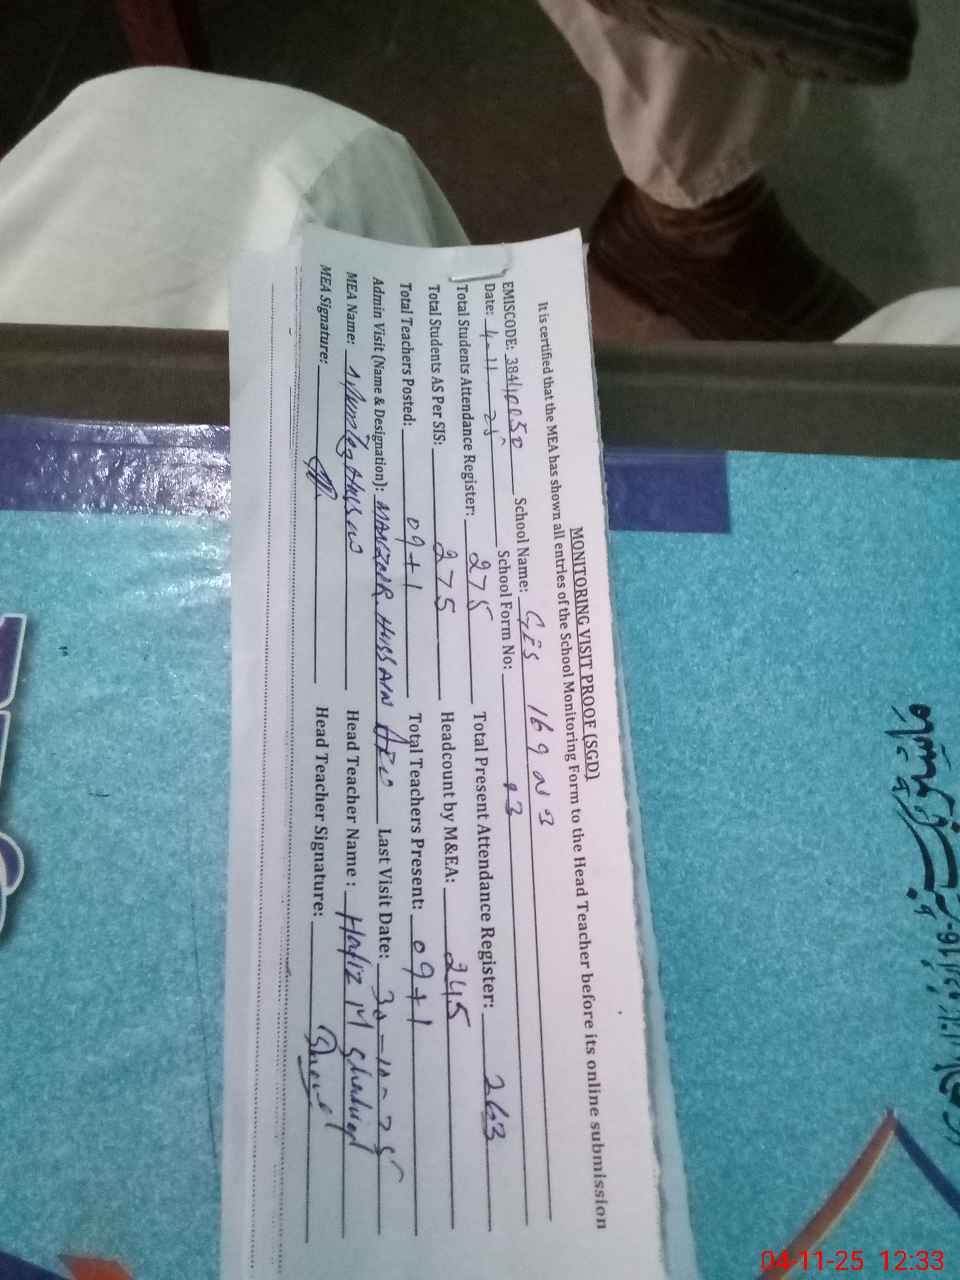 MONITORING VISIT PROOF (SGD)
It is certified that the MEA has shown all entries of the School Monitoring Form to the Head Teacher before its online submission
EMISCODE: School Name: GES 169 NB
Date: 4-11-25 School Form No: 13
Total Students Attendance Register: 275 Total Present Attendance Register: 263
Total Students AS Per SIS: 275 Headcount by M&EA: 245
Total Teachers Posted: 09+1 Total Teachers Present: 09+1
Admin Visit (Name & Designation): MANZOOR HUSSAIN AEO Last Visit Date: 30-10-25
MEA Name: Hussain Head Teacher Name: Hafiz M
MEA Signature: Head Teacher Signature:
04-11-25 12:33